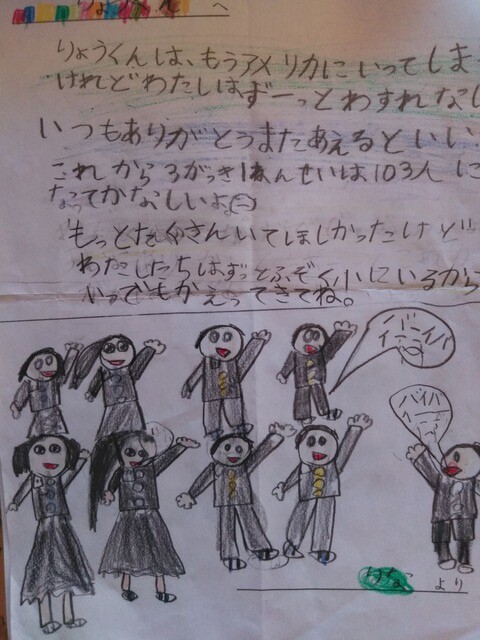 りょうくんへ
りょうくんは、もうアメリカにいってしま
けれどわたしはずーっとわすれなし
いつもありがとうまたあえるといい
これから3がっき1ねんせいは103人に
なってかなしいよ。
もっとたくさんいてほしかったけど
わたしたちはずっとふぞく小にいるから
いつでもかえってきてね。
バイバーイ
バイバ
より